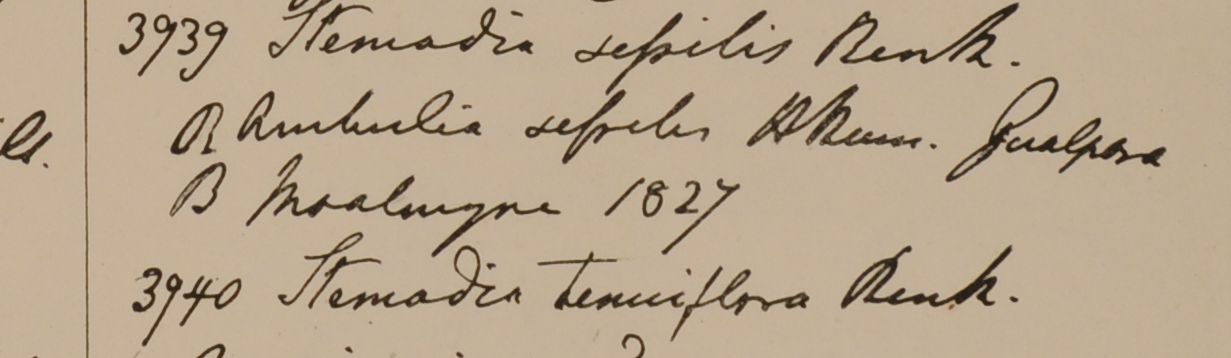 3939 Stemodia sessilis Benth.
R Ambulia sessilis H Ham. Gualpara
B Moalmyne 1827
3940 Stemodia tenuiflora Benth.